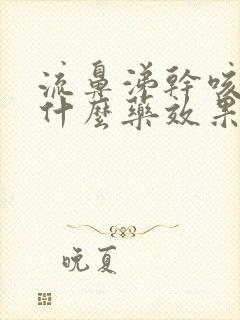 流鼻涕幹咳
什麼藥效果
晚夏